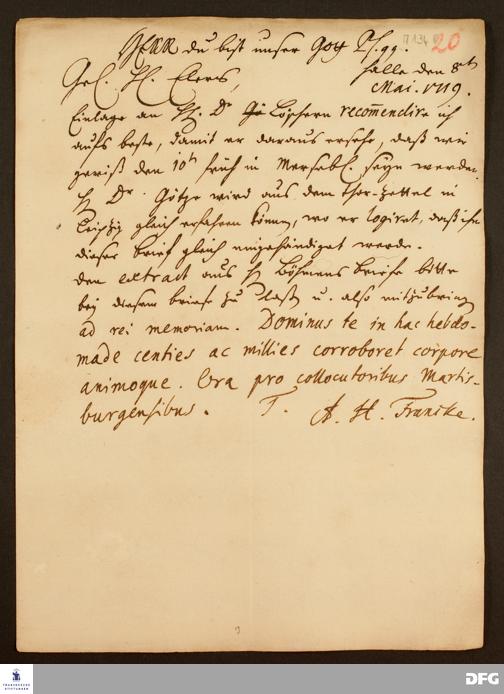 HERR du bist unser Gott Ps. 99.
20
Halle den 8ten
Gel. H. Elers,
Mai. 1719.
Einlage an H. Dr Löschern recom̃endire ich
aufs beste, damit er daraus ersehe, daß wir
gewiß den 10t früh in Merseb. seyn werden.
H Dr. Götze wird aus dem Thor-Zettel in
Leipzig gleich erfahren können, wo er logiret, daß ihm
dieser brief gleich eingehändiget werde.
den extract aus H Böhmens Briefe bitte
bey diesem briefe zu laßen u. also mitzubringen
ad rei memoriam. Dominus te in hac hebdo-
made centies ac millies corroboret corpore
animoque. Ora pro collocutoribus Martis-
burgensibus. T. A. H. Francke.
FRANCKESCHE
STIFTUNGEN
DFG